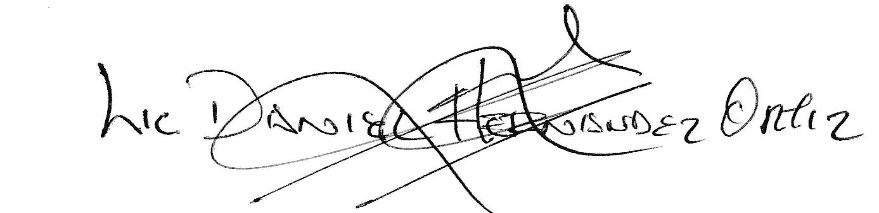 Lic Daniel Hernandez Ortiz